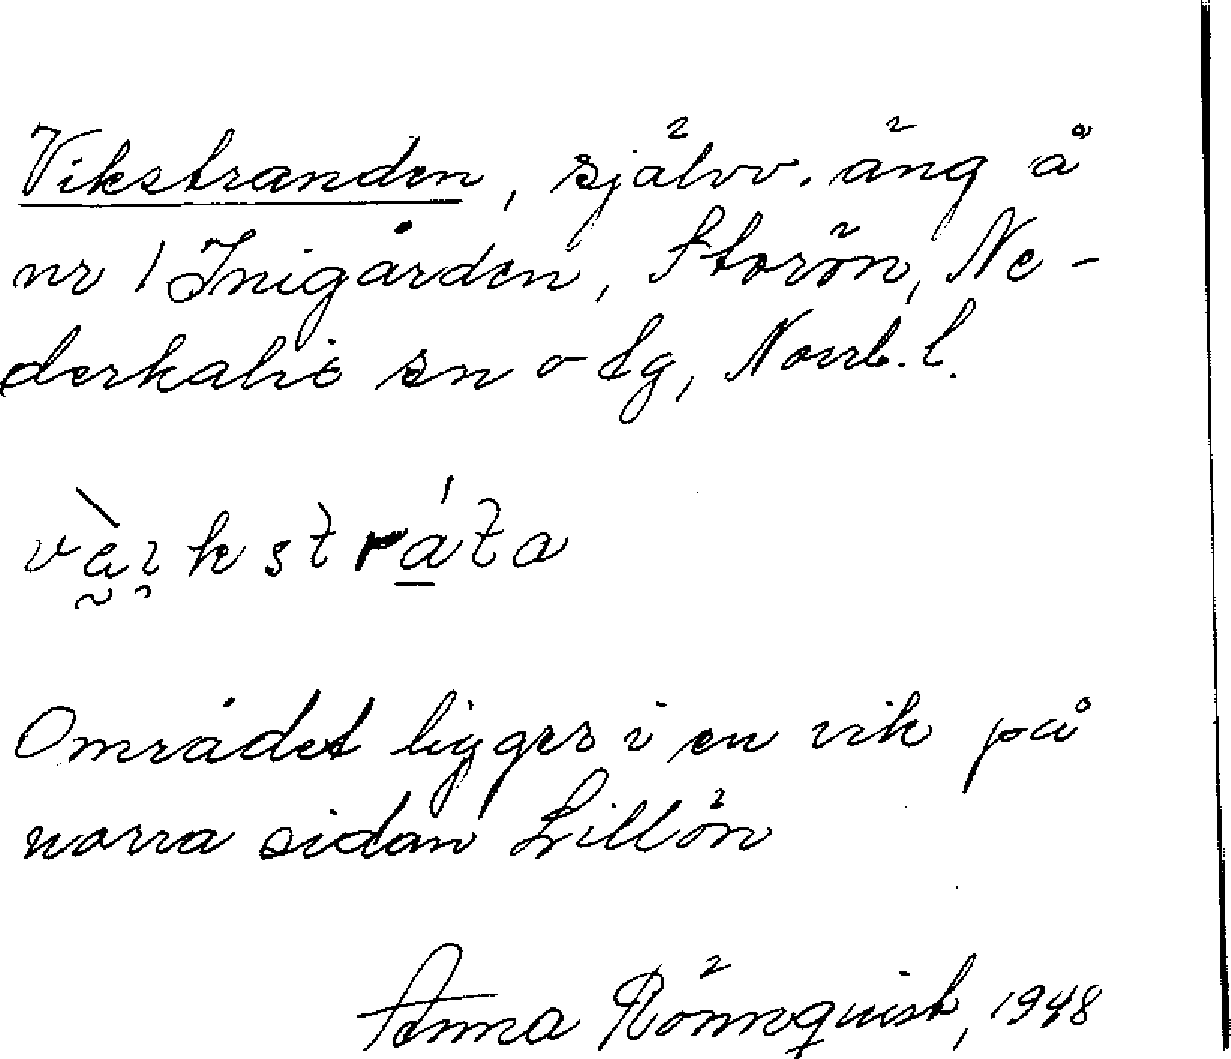 Vikstranden, självv. äng å
nr 1 Inigården, Storön, Ne-
derkalix sn o tg, Norrb. l.
Området ligger i en vik på
norra sidan Lillön
Anna Rönnquist, 1948